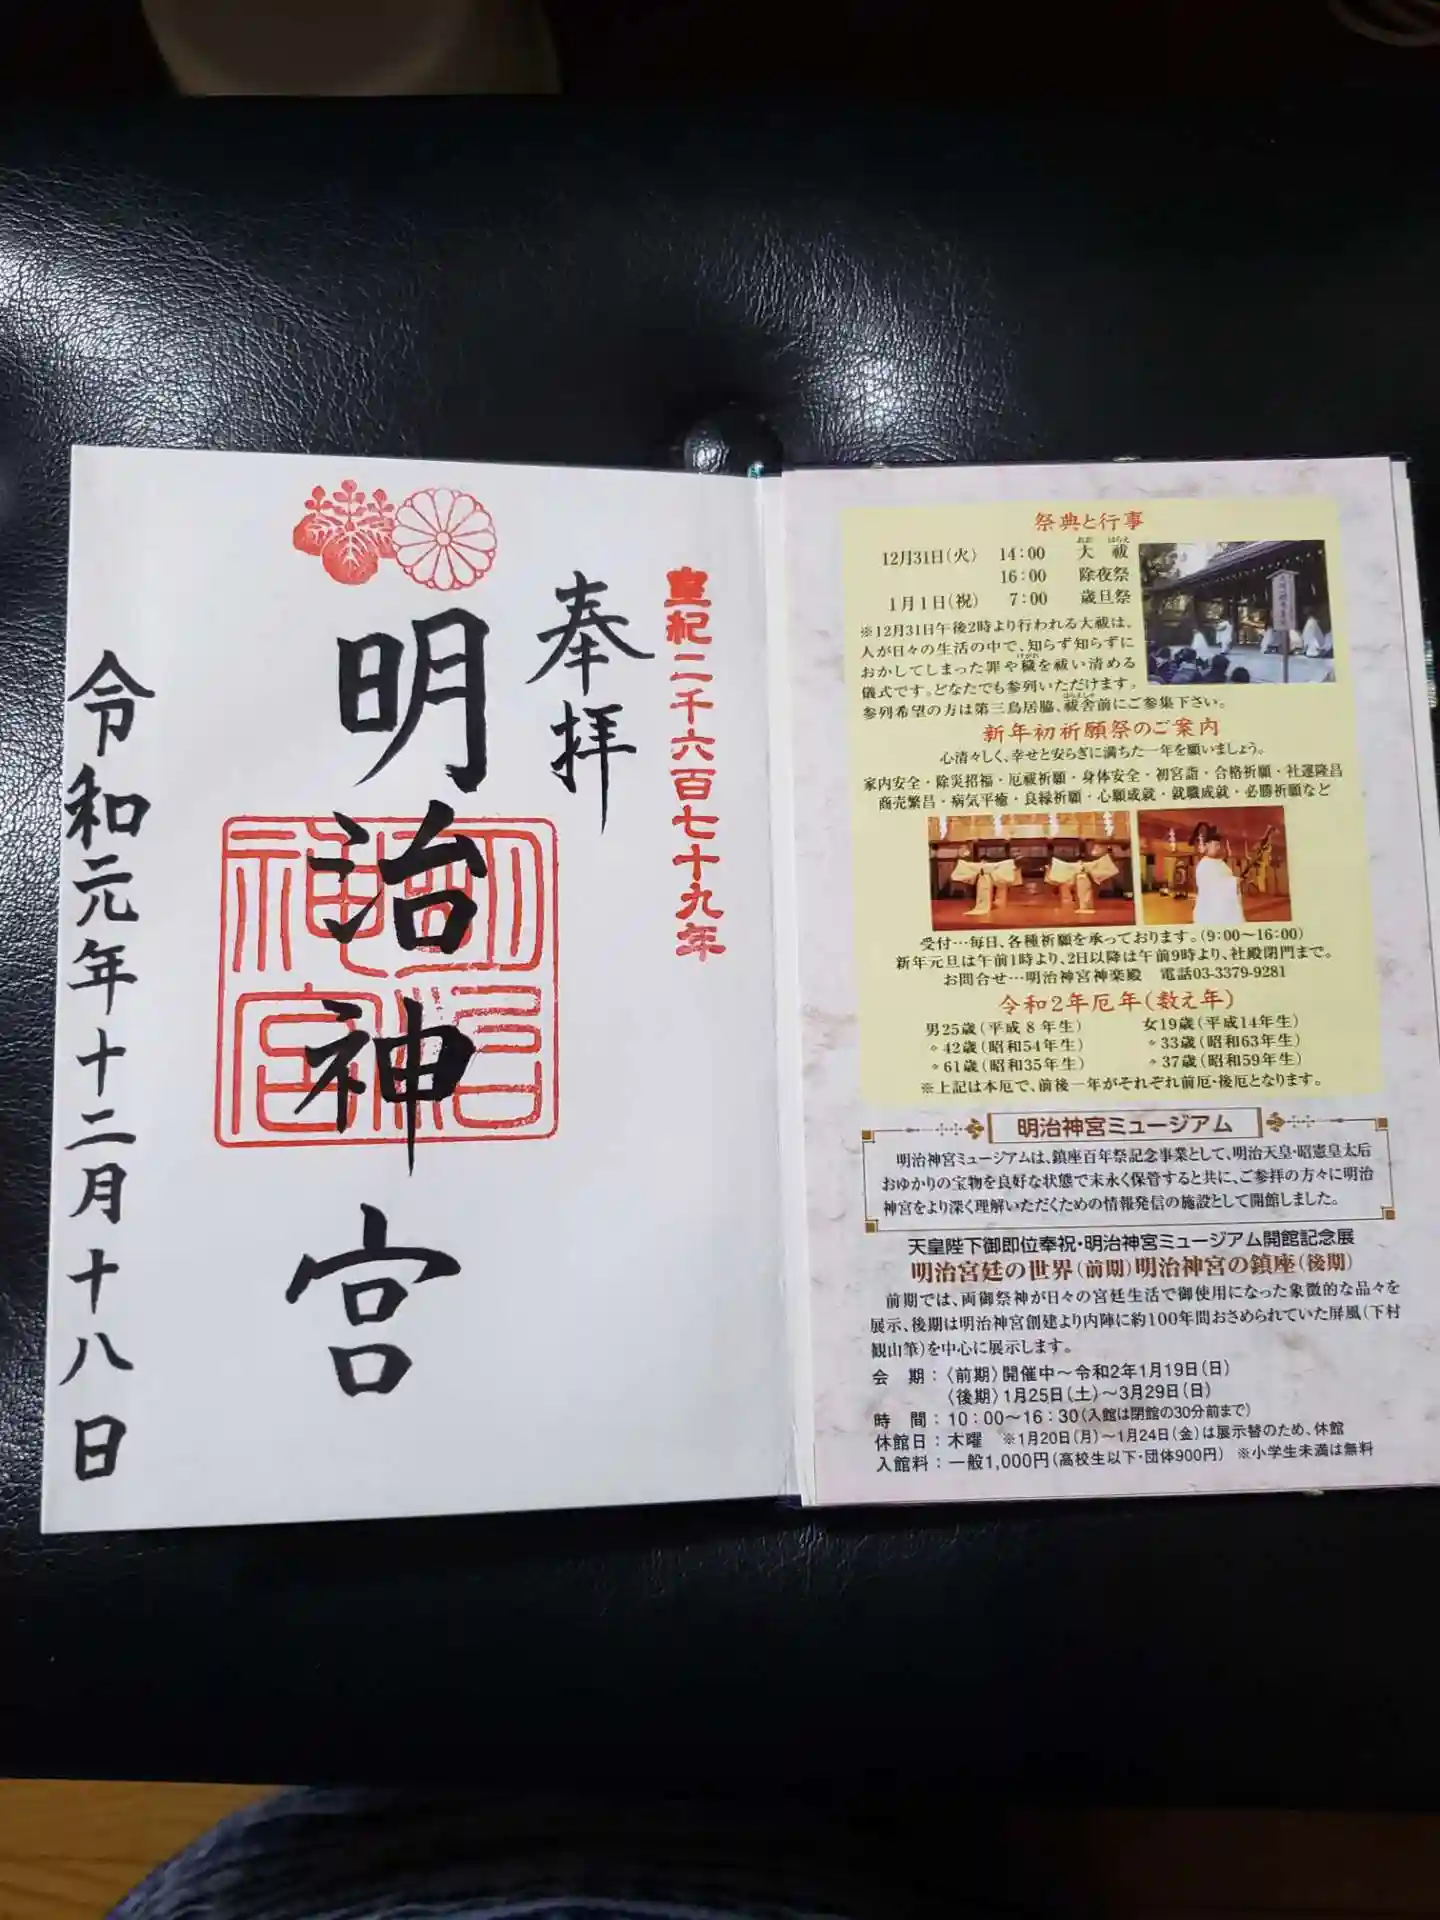 皇紀二千六百七十九年
奉拝
明治神宮
明治神宮
令和元年十二月十八日
祭典と行事
12月31日(火) 14:00 大祓
おお はらえ
16:00 除夜祭
1月1日(祝) 7:00 歳旦祭
※12月31日午後2時より行われる大祓は、
人が日々の生活の中で、知らず知らずに
おかしてしまった罪や穢を祓い清める
けがれ
儀式です。どなたでも参列いただけます。
参列希望の方は第三鳥居脇、祓舎前にご参集下さい。
はらえしゃ
新年初祈願祭のご案内
心清々しく、幸せと安らぎに満ちた一年を願いましょう。
家内安全・除災招福・厄祓祈願・身体安全・初宮詣・合格祈願・社運隆昌
商売繁昌・病気平癒・良縁祈願・心願成就・就職成就・必勝祈願など
受付…毎日、各種祈願を承っております。(9:00〜16:00)
新年元旦は午前1時より、2日以降は午前9時より、社殿閉門まで。
お問合せ…明治神宮神楽殿 電話03-3379-9281
令和2年厄年(数え年)
男25歳(平成8年生) 女19歳(平成14年生)
〃42歳(昭和54年生) 〃33歳(昭和63年生)
〃61歳(昭和35年生) 〃37歳(昭和59年生)
※上記は本厄で、前後一年がそれぞれ前厄・後厄となります。
明治神宮ミュージアム
明治神宮ミュージアムは、鎮座百年祭記念事業として、明治天皇・昭憲皇太后
おゆかりの宝物を良好な状態で末永く保管すると共に、ご参拝の方々に明治
神宮をより深く理解いただくための情報発信の施設として開館しました。
天皇陛下御即位奉祝・明治神宮ミュージアム開館記念展
明治宮廷の世界(前期)明治神宮の鎮座(後期)
前期では、両御祭神が日々の宮廷生活で御使用になった象徴的な品々を
展示、後期は明治神宮創建より内陣に約100年間おさめられていた屏風(下村
観山筆)を中心に展示します。
会 期:〈前期〉開催中〜令和2年1月19日(日)
〈後期〉1月25日(土)〜3月29日(日)
時 間:10:00〜16:30(入館は閉館の30分前まで)
休館日:木曜 ※1月20日(月)〜1月24日(金)は展示替のため、休館
入館料:一般1,000円(高校生以下・団体900円) ※小学生未満は無料